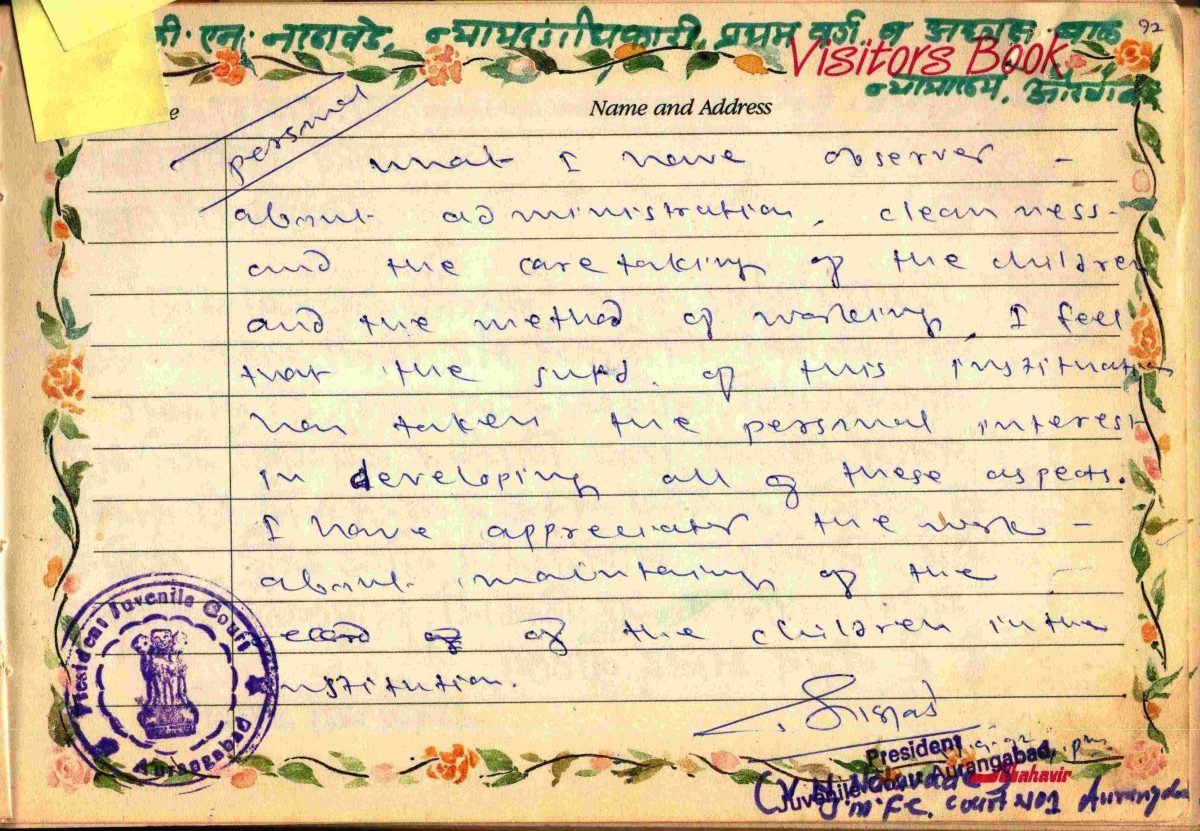 व्ही. एन. नरवाडे, न्यायदंडाधिकारी, प्रथम वर्ग व अध्यक्ष बाल
92
Visitors Book
न्यायालय, औरंगाबाद
Name and Address
personal
what I have observed -
about administration, cleanness-
and the care taking of the children
and the method of working, I feel
that the supd. of this institution
has taken the personal interest
in developing all of these aspects.
I have appreciated the work -
about maintaing of the -
record of of the children in the
institution.
President Juvenile Court
Aurangabad
President
Juvenile Court Aurangabad.
Mahavir
M.F.C. Court No 1 Aurangabad